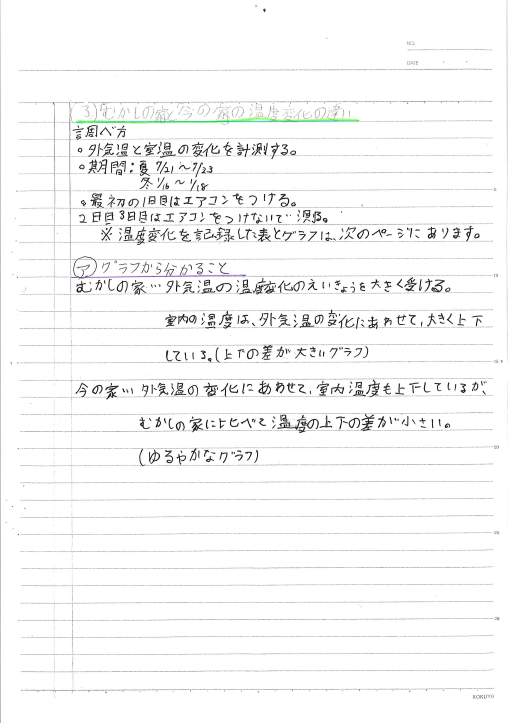 NO.
DATE
(3)むかしの家と今の家の温度変化の違い
調べ方
○外気温と室温の変化を計測する。
○期間:夏 7/21〜7/23
冬 1/16〜1/18
○最初の1日目はエアコンをつける。
2日目3日目はエアコンをつけないで測る。
※温度変化を記録した表とグラフは、次のページにあります。
㋐グラフから分かること
むかしの家…外気温の温度変化のえいきょうを大きく受ける。
室内の温度は、外気温の変化にあわせて、大きく上下
している。(上下の差が大きいグラフ)
今の家…外気温の変化にあわせて、室内温度も上下しているが、
むかしの家に比べて温度の上下の差が小さい。
(ゆるやかなグラフ)
KOKUYO